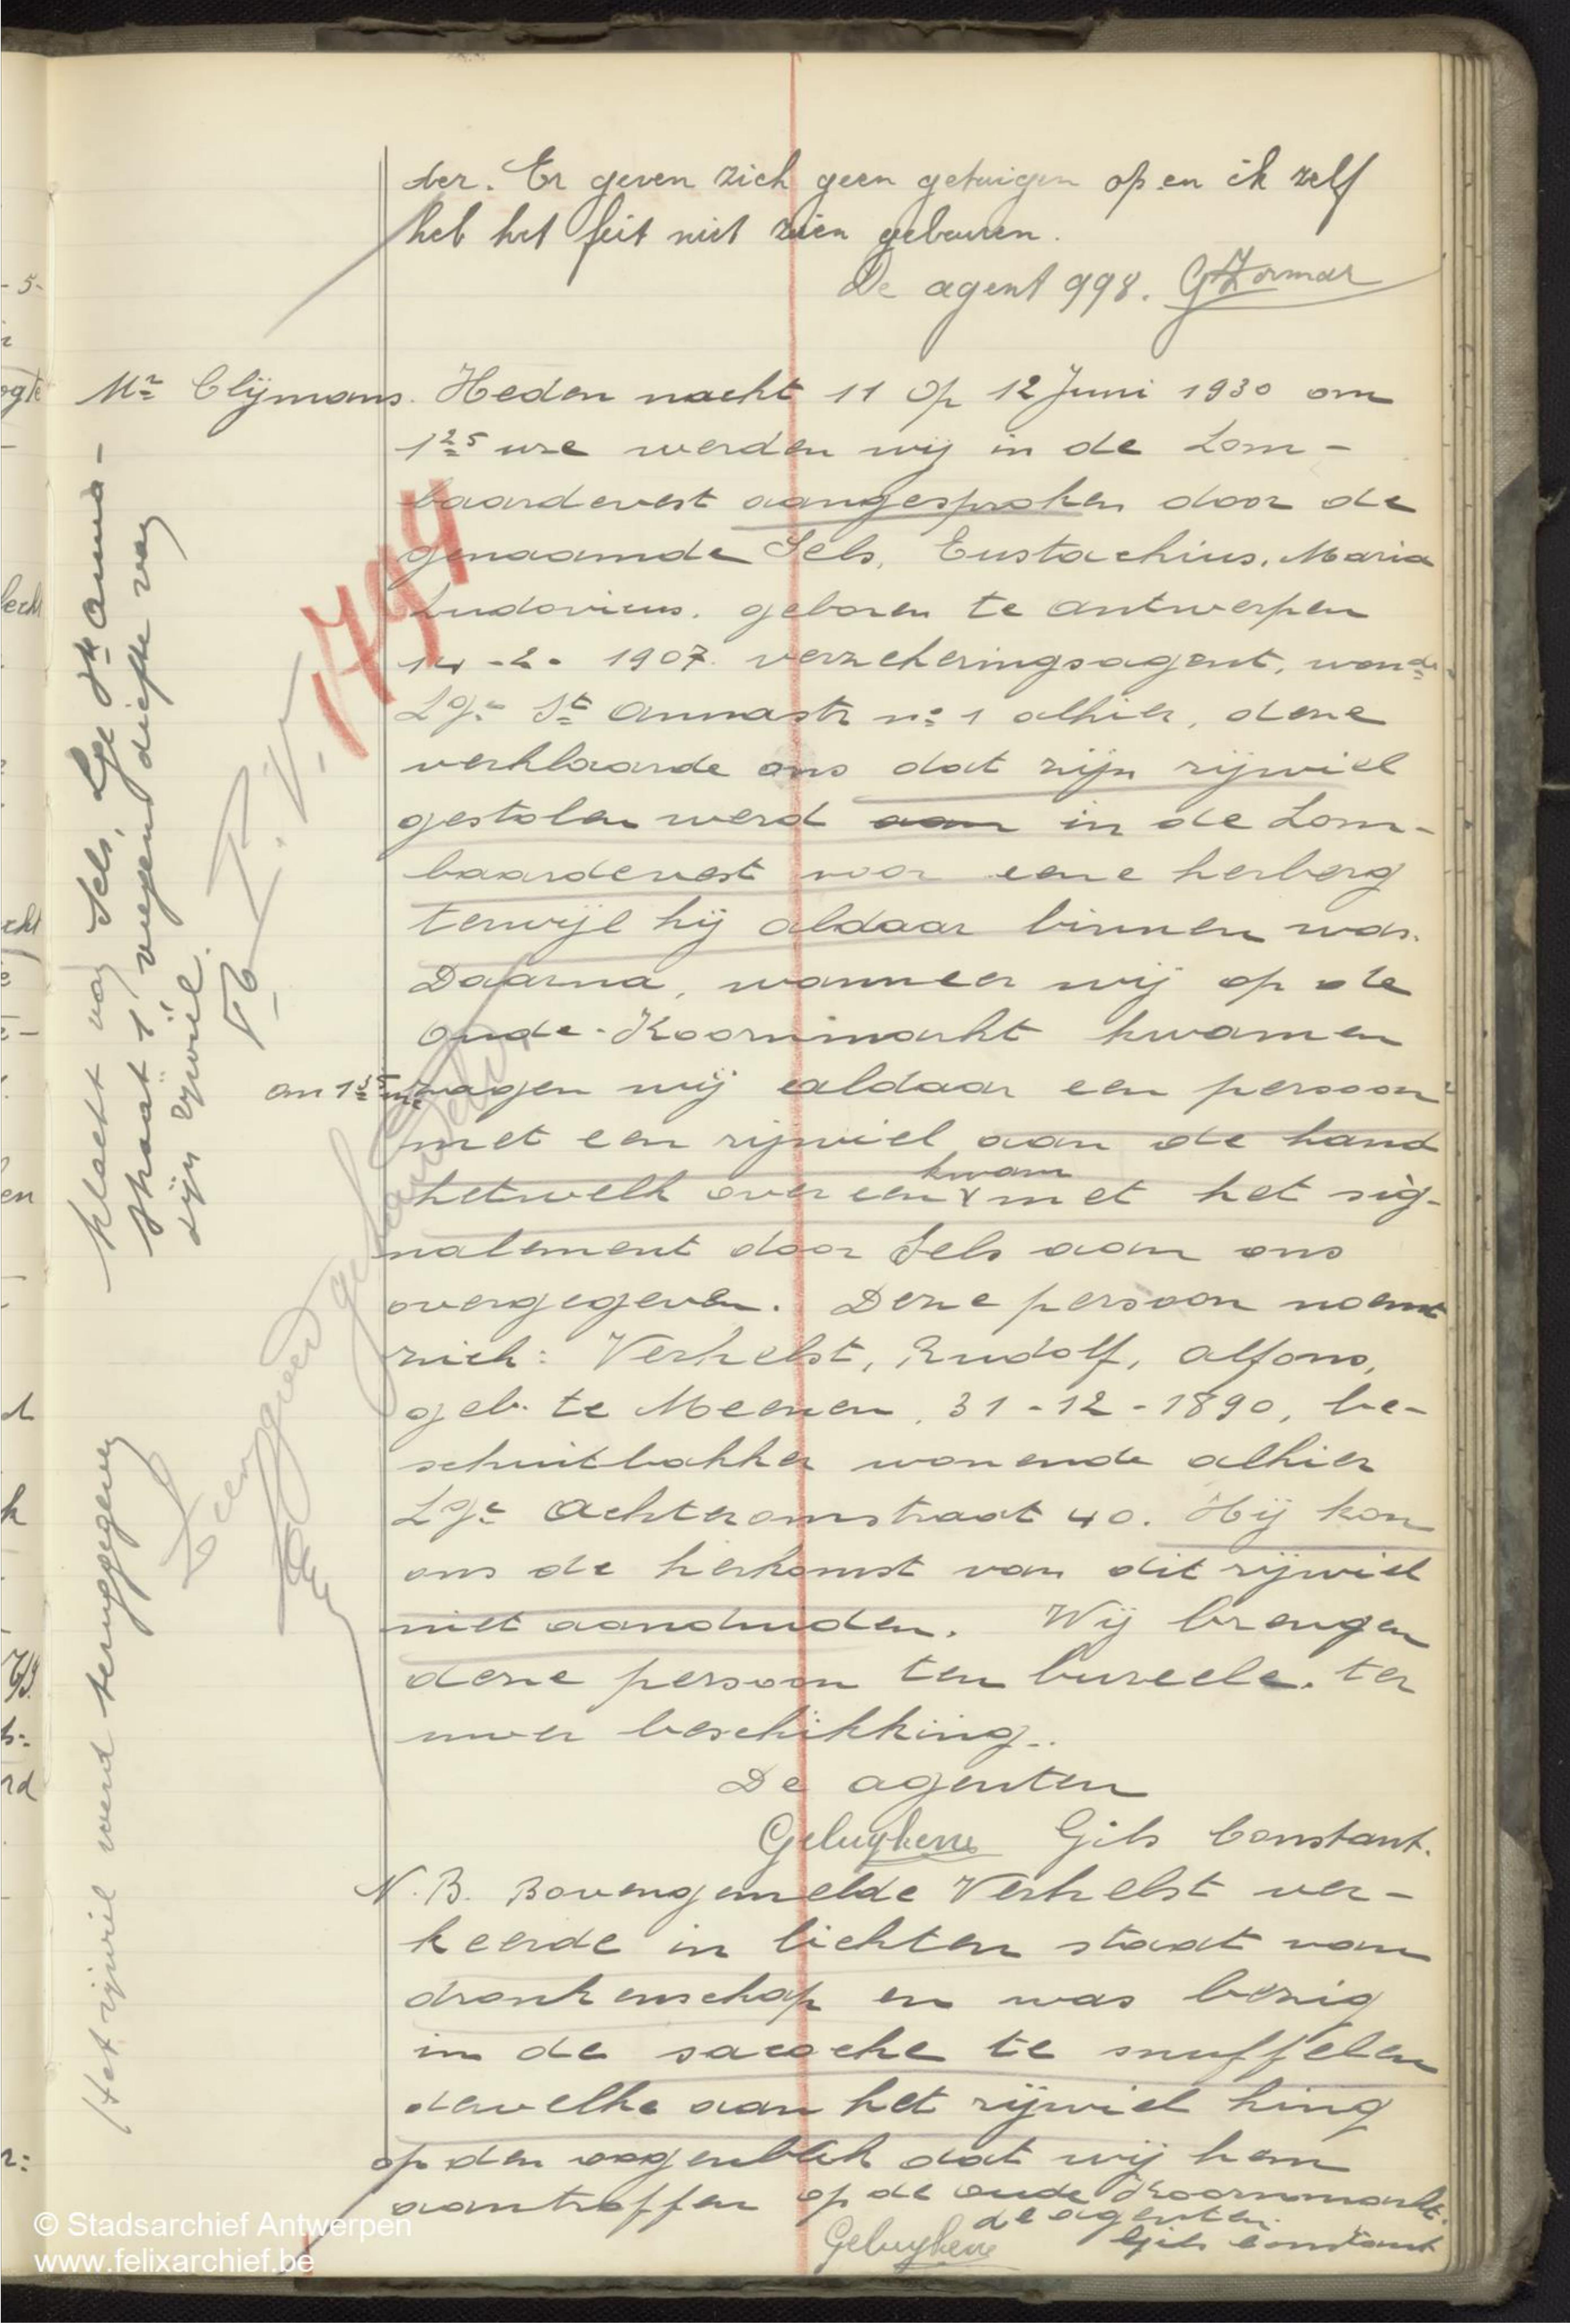 der. Er geven zich geen getuigen op en ik zelf
heb het feit niet zien gebeuren.
De agent 998.
Mr Clijmans. Heden nacht 11 op 12 Juni 1930 om
1 25 ure werden wij in de Lom-
baardevest aangesproken door de
genaamde Sels, Eustachius, Maria
Ludovicus. geboren te Antwerpen
14-2-1907. verzekeringsagent, wonde
Lge St Annastr no 1 alhier, deze
verklaarde ons dat zijn rijwiel
gestolen werd aan in de Lom-
baardevest voor eene herberg
terwijl hij aldaar binnen was.
Daarna, wanneer wij op de
Oude-Koornmarkt kwamen
om 1 35 ure zagen wij aldaar een persoon
met een rijwiel aan de hand
hetwelk overeen kwam met het sig-
nalement door Sels aan ons
overgegeven. Deze persoon noemt
zich: Verhelst, Rudolf, Alfons,
geb. te Meenen, 31-12-1890, be-
schuitbakker wonende alhier
Lge Achteromstraat 40. Hij kon
ons de herkomst van dit rijwiel
niet aanduiden. Wij brengen
deze persoon ten bureele. ter
uwer beschikking..
De agenten
Geluykens Gils Constant.
N.B. Bovengemelde Verhelst ver-
keerde in lichten staat van
dronkenschap en was bezig
in de sacoche te snuffelen
dewelke aan het rijwiel hing
op den oogenblik dat wij hem
aantroffen op de Oude Koornmarkt.
de agenten.
Geluykens Gils Constant
Klacht van Sels, Lge St Anna-
straat 1 wegens diefte van
zijn rijwiel.
P.V.
1794
Het rijwiel werd teruggegeven
© Stadsarchief Antwerpen
www.felixarchief.be